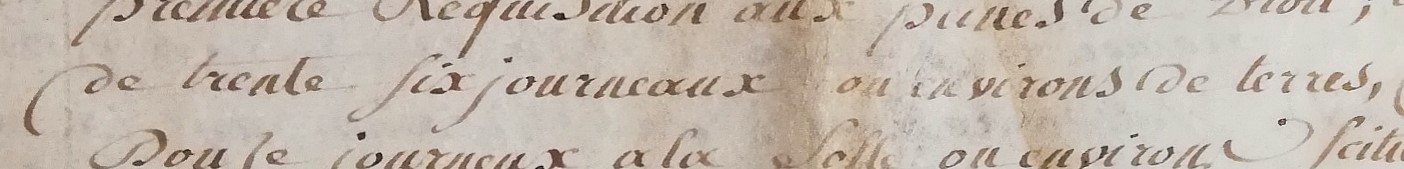 premiere Requisition aux de
de trente six journeaux ou environs de terres,
Douse journeux a la Solle ou environ